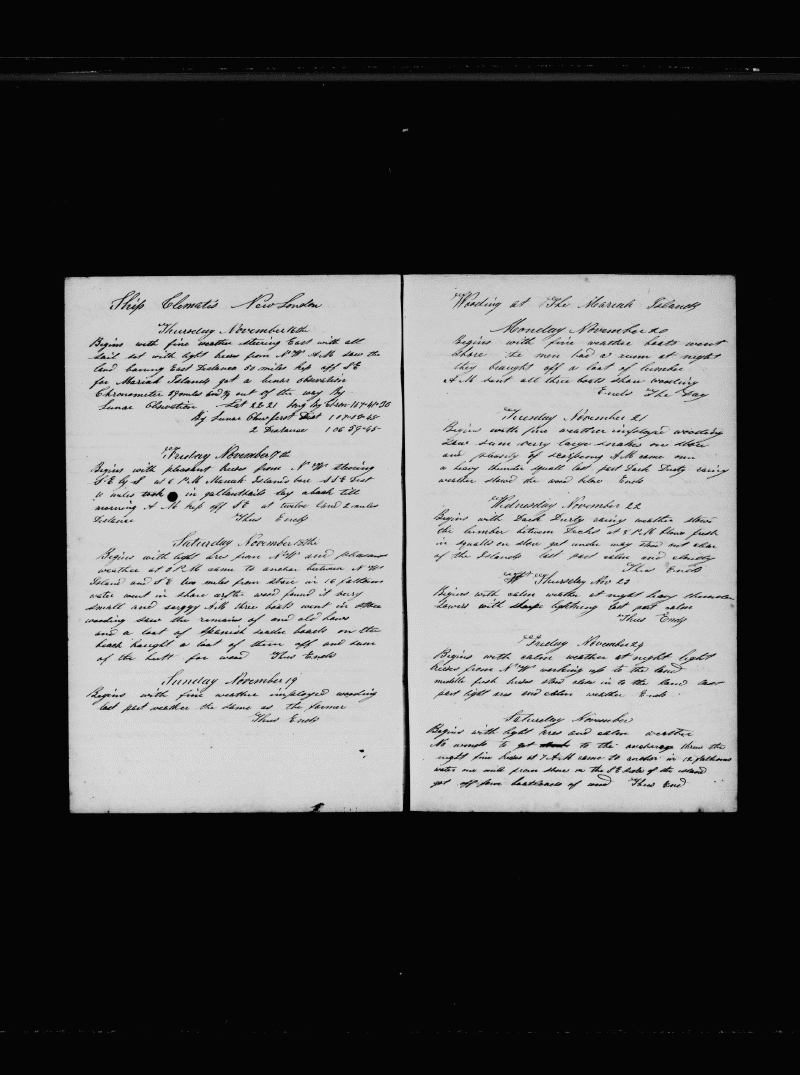 Ship Clematis New London
Thursday November 16th
Begins with fine weather stearing East with all
sail set with light breses from N W A.M saw the
land baring East Distance 50 miles kep off S E
for Mariah Islands got a lunar observation
Chronometer miles out of the way By
Lunar Observtion Lat 22-21 long by Cron 107-41-30
By Lunar first Dist 107-13-45
2 Distance 106 59-45
Friday November 17th
Begins with pleasant breses from N W stearing
S.E by S at 6 P.M Mariah Islands bore S S E Dist
miles took in gallantsails lay aback till
morning A M kep off S E at twelve land 2 miles
Distance Thus Ends
Saturday November 18th
Begins with light ares from N W and pleasant
weather at 3 P.M came to anchor between N W
Island and S E two miles from shore in 16 fathoms
water went in shore after wood found it very
small and A M three boats went in
wooding saw the remains of and old
and a boat of Spanish seader boads on the
beach baught a boat of them off and sum
of the butts for wood Thus Ends
Sunday November 19
Begins with fine weather imployed wooding
last part weather the same as the former
Thus Ends
Wooding at The Mariah Islands
Monday November 20
Begins with fine weather boats went
shore the men had a at night
they braught off a boat of lumber
A M sent all three boats shore wooding
Ends The Day
Tuesday November 21
Begins with fine weather imployed wooding
saw sum very large snakes on shore
and plenty of scorpions A M came on
a heavy thunder squall last part Dark Durty rainy
weather stowed the wood below Ends
Wednesday November 22
Begins with Dark Durty rainy weather stowe
the lumber between Decks at 3 P.M blows fresh
in squalls on shore got under way stood out clear
of the Islands last part calm and cloudy
Thus Ends
Thursday Nov 23
Begins with calm weather at night heavy thunder
showers with sharpe lightning last part calm
Thus Ends
Friday November 24
Begins with calm weather at night light
breses from N W working up to the land
middle fresh breses stood close in to the land last
part light ares and calm weather Ends
Saturday November
Begins with light ares and calm weather
No winds to get to the ancharage threw the
night fine breses at 7 A.M came to anchor in 12 fathoms
water one mile from shore on the S E side of the island
got off four boatloads of wood Thus End